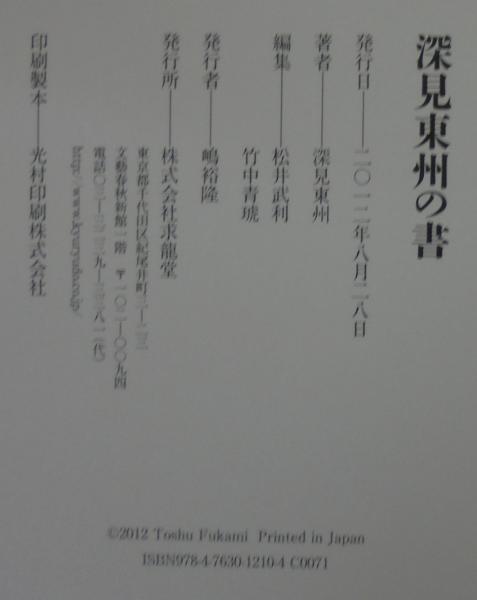 深見東州の書
発行日――二〇一二年八月二八日
著者――深見東州
編集――松井武利
竹中青琥
発行者――嶋裕隆
発行所――株式会社求龍堂
東京都千代田区紀尾井町三―二三
文藝春秋新館一階 〒一〇二―〇〇九四
電話〇三―三二三九―三三八一(代)
http://www.kyuryudo.co.jp/
印刷製本――光村印刷株式会社
©2012 Toshu Fukami Printed in Japan
ISBN978-4-7630-1210-4 C0071